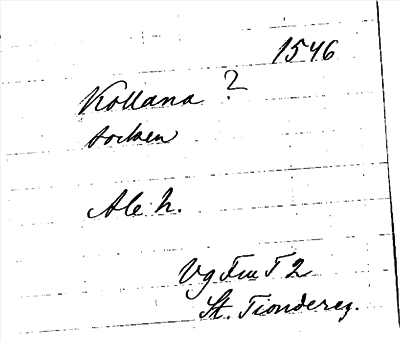 1546
Kollana ?
socken
Ale h.
Vg Fru T 2
St. Tiondereg.